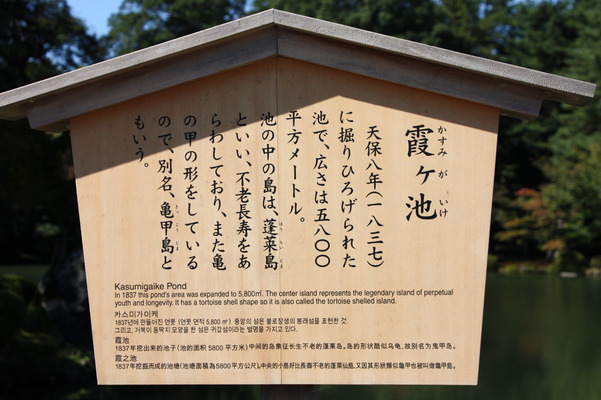 霞ヶ池
かすみ が いけ
天保八年(一八三七)
に掘りひろげられた
池で、広さは五八〇〇
平方メートル。
池の中の島は、蓬莱島
ほうらいじま
といい、不老長寿をあ
らわしており、また亀
の甲の形をしている
ので、別名、亀甲島と
きっこうじま
もいう。
Kasumigaike Pond
In 1837 this pond's area was expanded to 5,800㎡. The center island represents the legendary island of perpetual
youth and longevity. It has a tortoise shell shape so it is also called the tortoise shelled island.
카스미가이케
1837년에 만들어진 연못 (연못 면적 5,800 ㎡) 중앙의 섬은 불로장생의 봉래섬을 표현한 것.
그리고, 거북이 등딱지 모양을 한 섬은 귀갑섬이라는 별명을 가지고 있다.
霞池
1837年挖出来的池子(池的面积 5800 平方米)中间的岛意征长生不老的蓬莱岛。岛的形状酷似乌龟、故别名为鬼甲岛。
霞之池
1837年挖掘而成的池塘(池塘面積為5800平方公尺),中央的小島好比長壽不老的蓬萊仙島,又因其形狀類似龜甲也被叫做龜甲島。